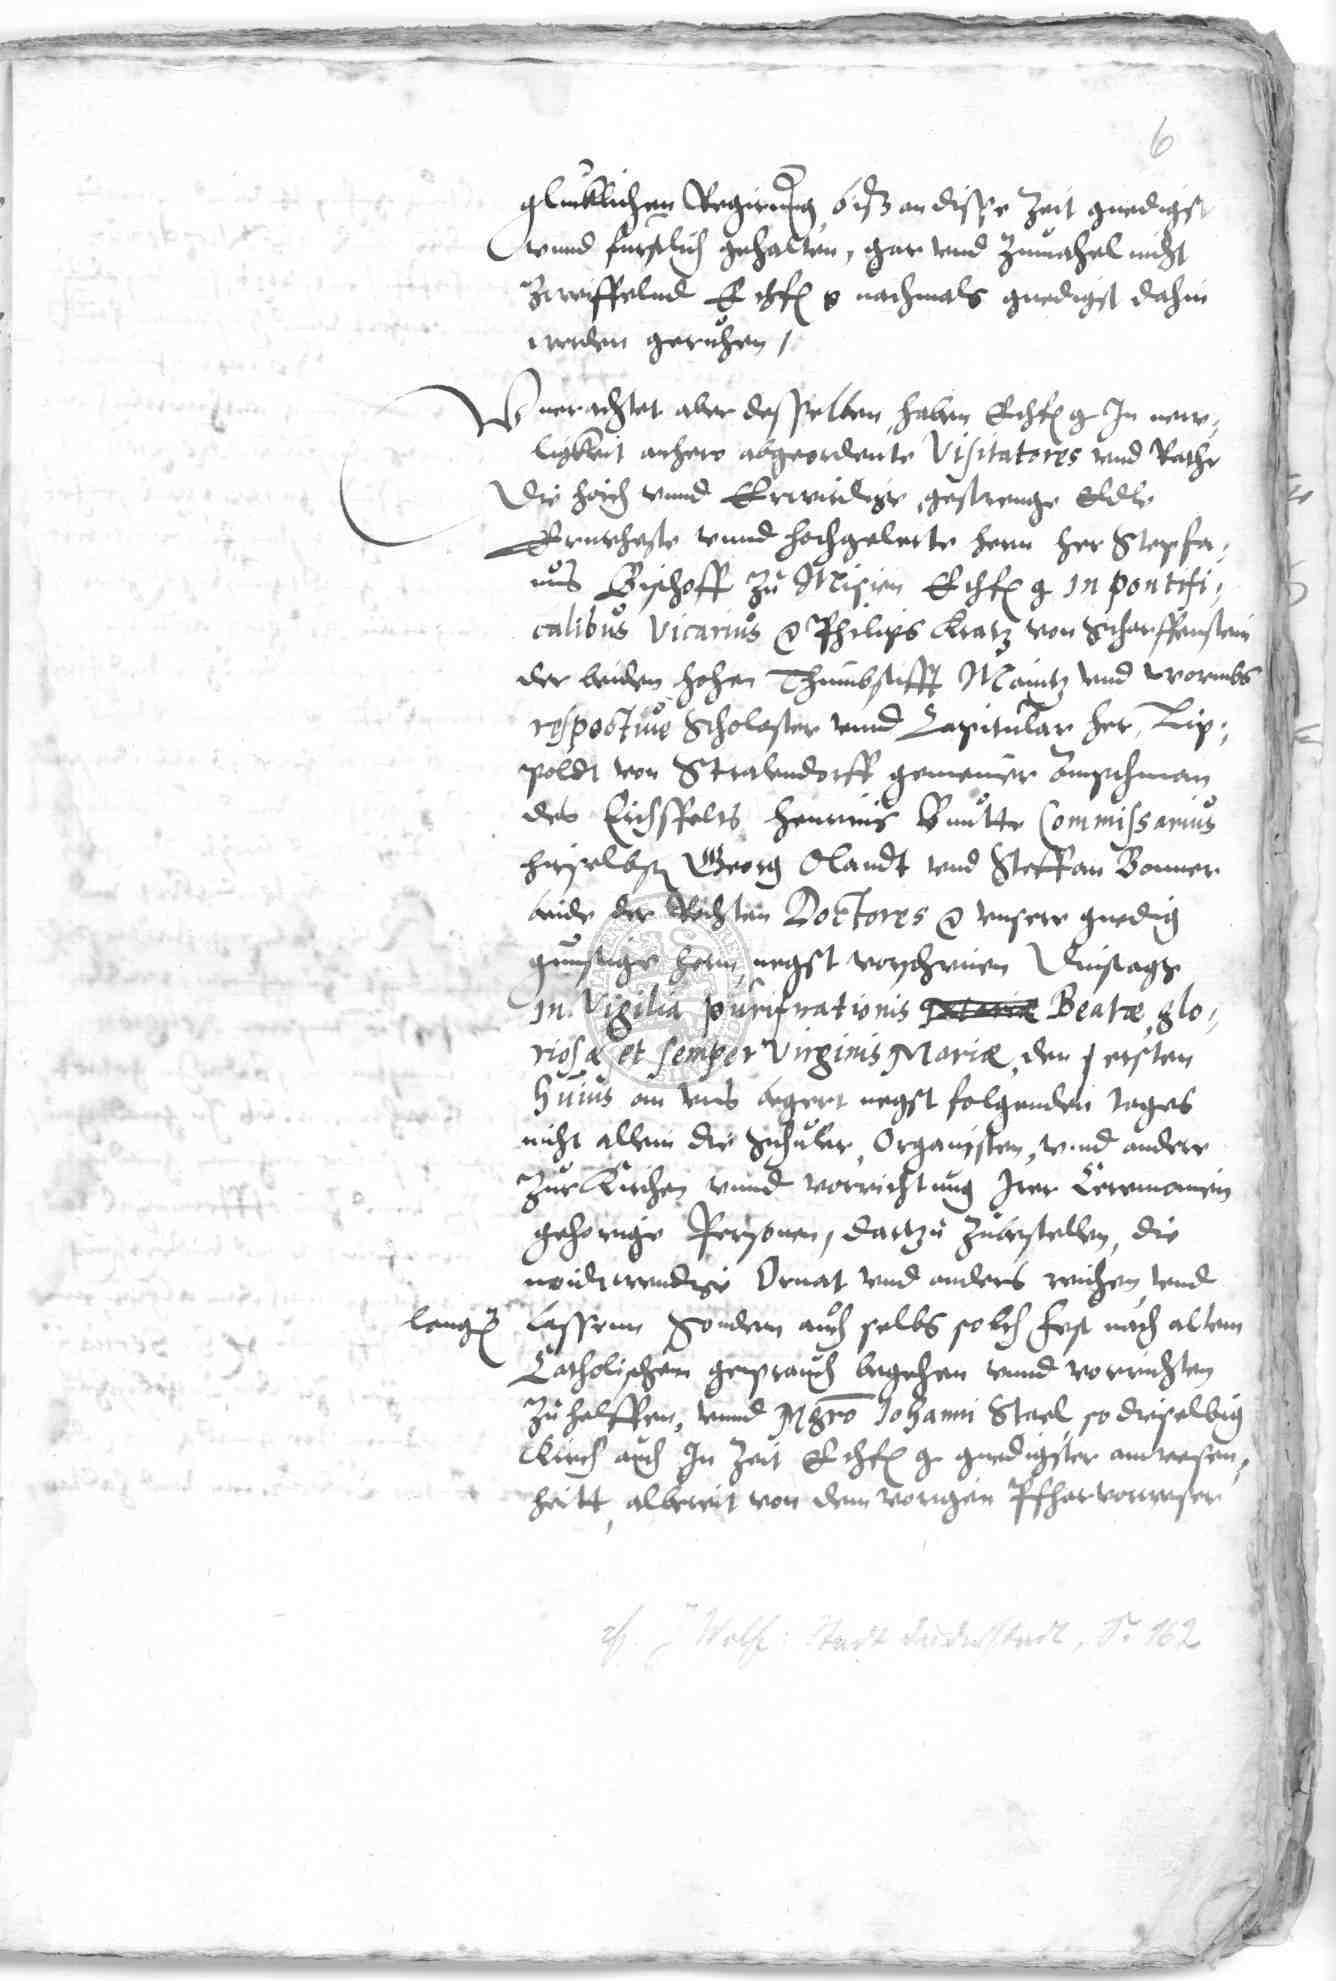 6
glucklichen Regirung, biß an disse Zeit gnedigst
vnnd furstlich gehalten, gar vnd Zumahel nicht
Zweiffelnd E chf g nachmals gnedigst dahin
werden geruhen /
Vnerachtet aber desselben, haben E chf g In new-,
ligkeit anhero abgeordente Visitatores vnd Rathe
Die hoich vnnd Erwirdige, gestrenge Edle
Ernvheste vnnd hochgelerte hern her Stepfa-,
nus Bischoff zu Misien E chf g in pontifi-,
calibus Vicarius Philips Kratz von Scharffenstein
der beiden hohen Thumbstifft Maintz vnd wormbs
respective Scholaster vnnd Capitular her, Lip-,
poldt von Stralendorff gemeiner Amptman
des Eichsfelts Henricus Bunthe Commissarius
hirselbst Georg Olandt vnd Steffan Bonner
beide der Rechten Doctores vnsere gnedig
gunstige hern, negst vorschienen Dinstags
in Vigilia purificationis Beatæ, glo-,
riosæ et semper Virginis Mariæ, den ersten
huius an vns begert negst folgenden tages
nicht allein die Schuler, Organisten, vnd andere
Zur Kirchen vnnd vorrichtung Irer Ceremonien
gehorige Personen, dartzu Zubestellen, die
noidtwendige Ornat vnd anders reichen vnd
langen Lassenn Sondern auch selbs solch fest nach altem
Catholischem geprauch begehen vnnd vorrichten
Zu helffen, vnnd Mgro Johanni Stael so dieselbig
Kirch auch In Zeit E chf g gnedigster anwesen-,
heitt, albereit von dem vorigen Pfharvorweser
cf. J Wolf: Stadt Duderstadt, S. 162